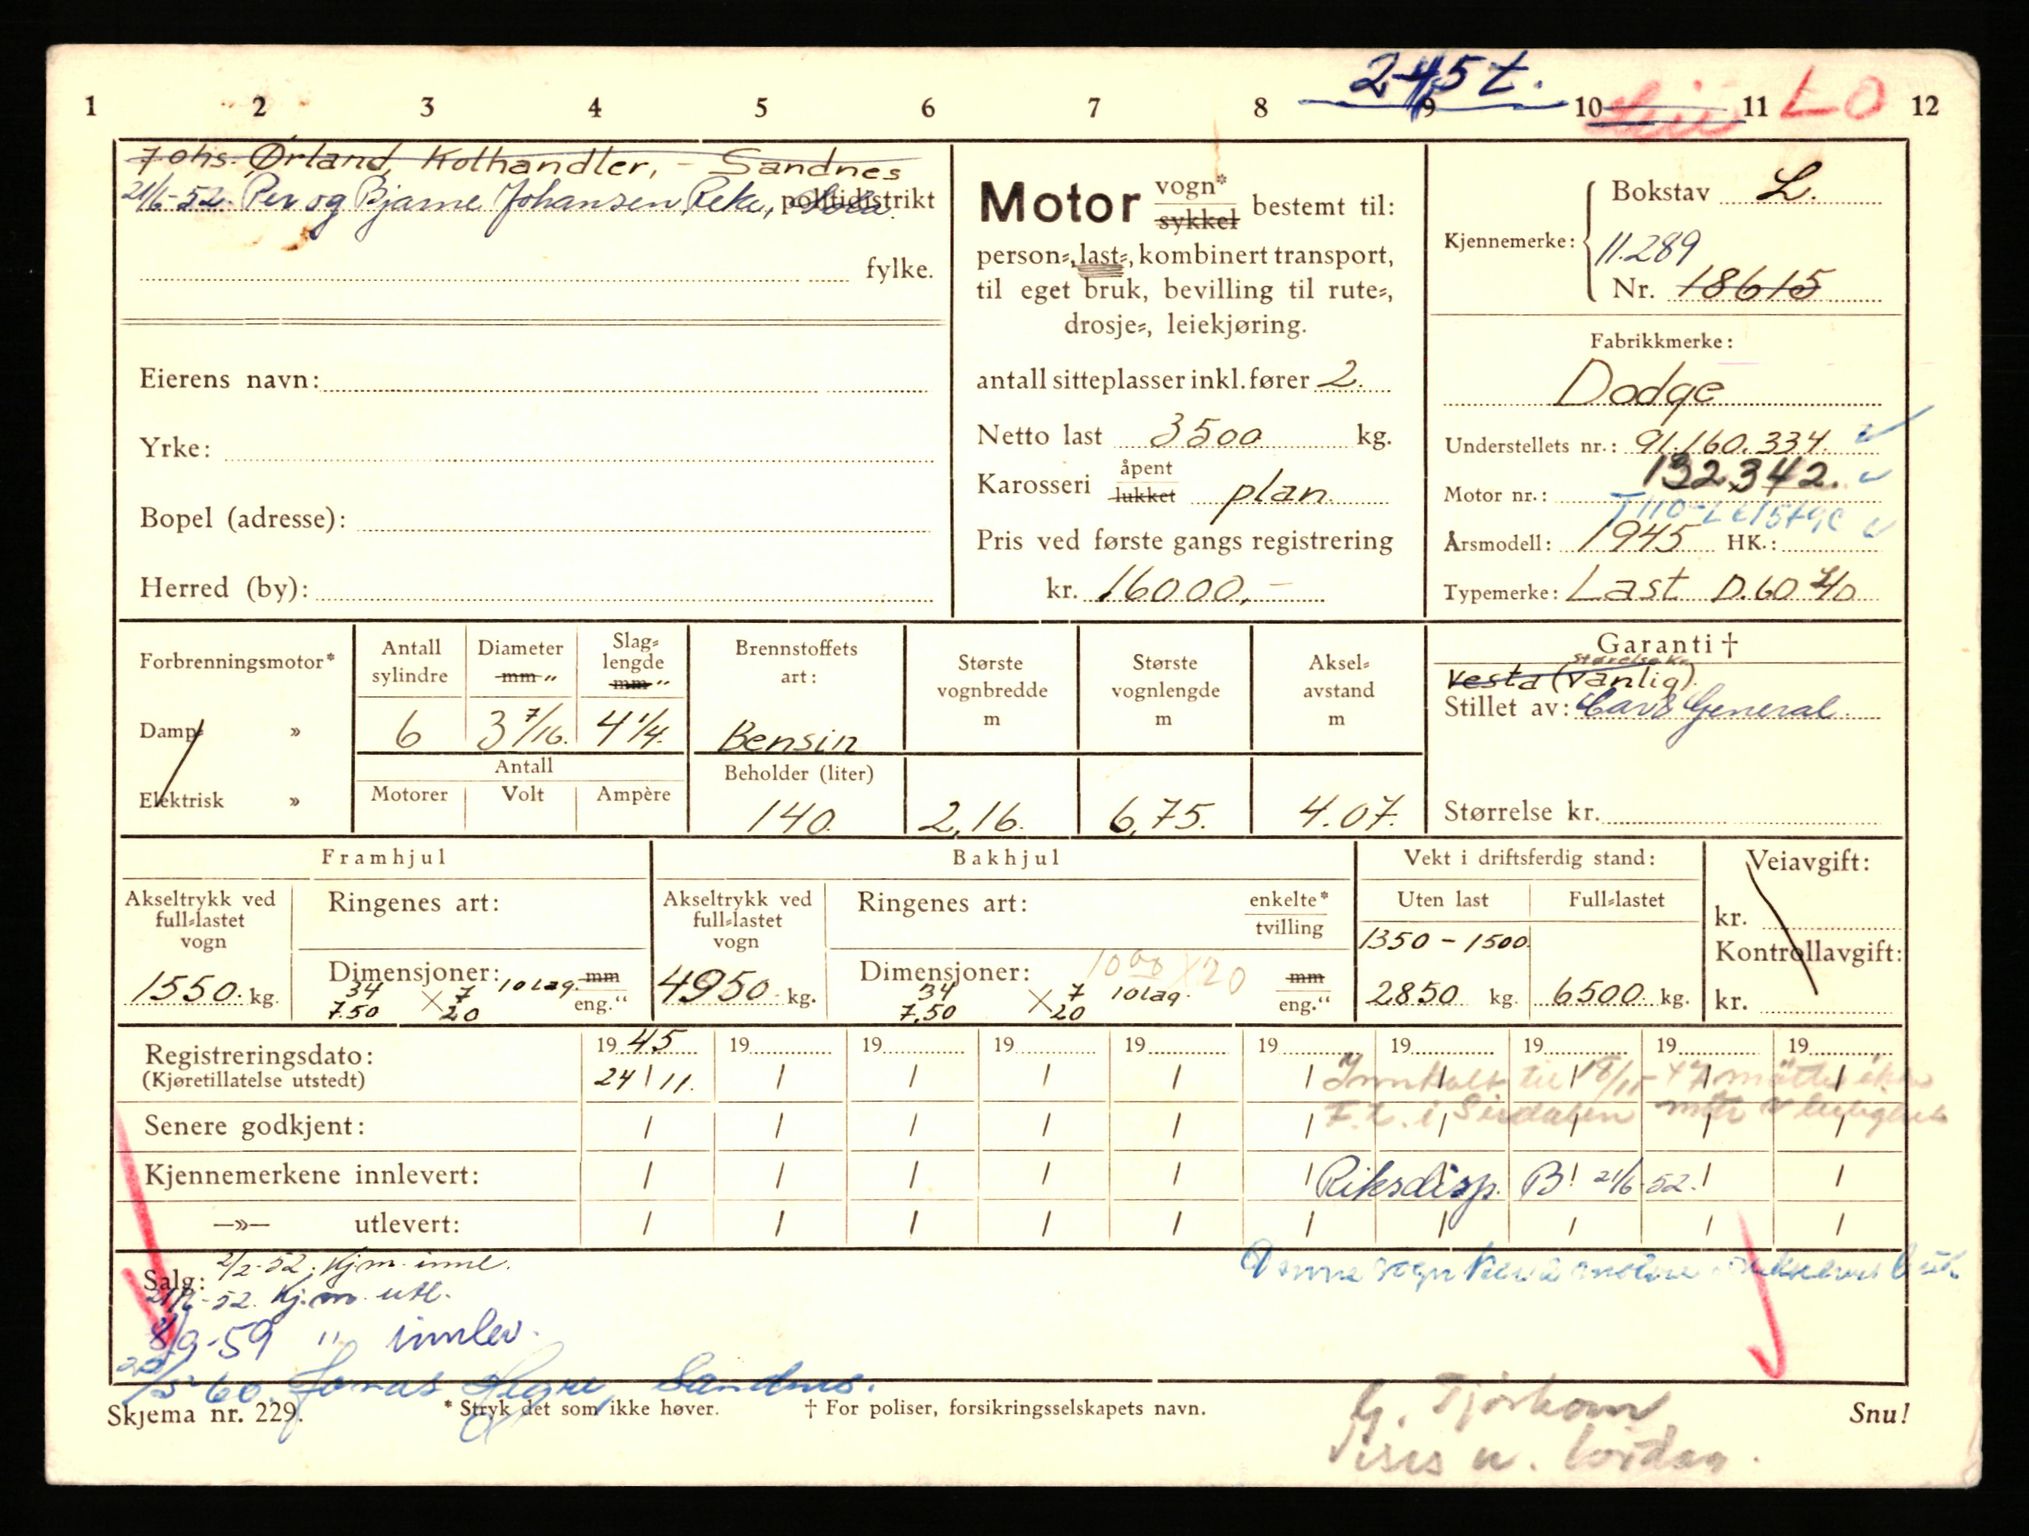 2,45 t.
1 2 3 4 5 6 7 8 9 10 11 LO 12
Johs. Ørland, Kolhandler, - Sandnes
21/6-52. Per og Bjarne Johansen Reke, politidistrikt
fylke.
Eierens navn:
Yrke:
Bopel (adresse):
Herred (by):
Motor vogn* sykkel bestemt til:
person-, last-, kombinert transport,
til eget bruk, bevilling til rute-,
drosje-, leiekjøring.
antall sitteplasser inkl. fører 2.
Netto last 3500 kg.
Karosseri åpent lukket plan.
Pris ved første gangs registrering
kr. 16000,-
Bokstav L.
Kjennemerke: 11.289
Nr. 18615
Fabrikkmerke:
Dodge
Understellets nr.: 91.160.334.
132342.
Motor nr.:
Årsmodell: 1945 HK.:
Typemerke: Last D.60 L/D
Forbrenningsmotor*
Damp- »
Elektrisk »
Antall sylindre
6
Diameter mm "
3 7/16.
Slag-lengde mm "
4 1/4.
Antall
Motorer Volt Ampère
Brennstoffets art:
Bensin
Beholder (liter)
140.
Største vognbredde m
2,16.
Største vognlengde m
6,75.
Aksel-avstand m
4.07.
Garanti †
Størrelse kr.
Vesta (Vanlig).
Stillet av: Car & General
Størrelse kr.
Framhjul
Akseltrykk ved full-lastet vogn
1550. kg.
Ringenes art:
Dimensjoner: 34 x 7 10 lag. mm
7.50 20 eng."
Bakhjul
Akseltrykk ved full-lastet vogn
4950. kg.
Ringenes art: enkelte* tvilling
Dimensjoner: 1000 x 20
34 x 7 10 lag. mm
7,50 20 eng."
Vekt i driftsferdig stand:
Uten last Full-lastet
1350 - 1500.
2850 kg. 6500 kg.
Veiavgift:
kr.
Kontrollavgift:
kr.
Registreringsdato: 19 45 19 19 19 19 19 19 19 19 19
(Kjøretillatelse utstedt) 24 / 11.
Innkalt til 18/11-47 møtte ikke
F.t. i Sirdalen møter v leilighet
Senere godkjent:
Kjennemerkene innlevert: Riksdisp. B! 21/6-52.
—»— utlevert:
Salg: 2/2-52. Kjm. innl.
21/6-52. Kj.m. utl.
8/9-59 " innlev.
Denne vogn
/5-60. Jonas Hegre, Sandnes.
Skjema nr. 229. * Stryk det som ikke høver. † For poliser, forsikringsselskapets navn. Snu!
G. Tjørhom